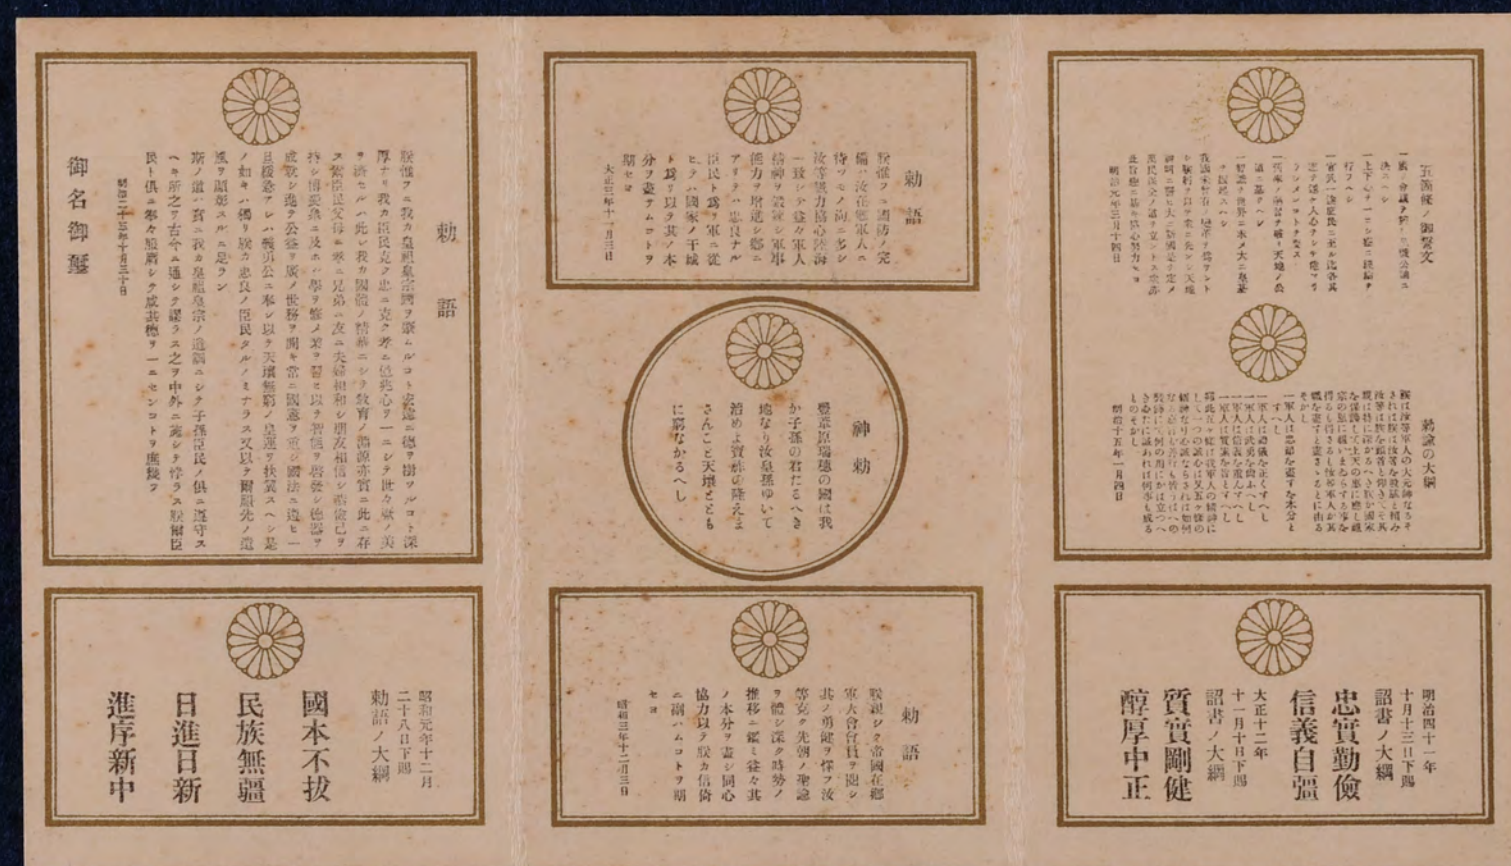 五箇條ノ御誓文
一廣ク會議ヲ興シ萬機公論ニ
決スヘシ
一上下心ヲ一ニシテ盛ニ經綸ヲ
行フヘシ
一官武一途庶民ニ至ル迄各其
志ヲ遂ケ人心ヲシテ倦マサラ
シメンコトヲ要ス
一舊來ノ陋習ヲ破リ天地ノ公
道ニ基クヘシ
一智識ヲ世界ニ求メ大ニ皇基
ヲ振起スヘシ
我國未曾有ノ變革ヲ爲サント
シ朕躬ヲ以テ衆ニ先ンシ天地
神明ニ誓ヒ大ニ斯國是ヲ定メ
萬民保全ノ道ヲ立ントス衆亦
此旨趣ニ基キ協心努力セヨ
明治元年三月十四日
勅諭の大綱
朕は汝等軍人の大元帥なるそ
されは朕は汝等を股肱と頼み
汝等は朕を頭首と仰きてそ其
親は特に深かるへき朕か國家
を保護して上天の惠に應し祖
宗の恩に報いまゐらする事を
得るも得さるも汝等軍人か其
職を盡すと盡さゝるとに由る
そかし
一軍人は忠節を盡すを本分と
すへし
一軍人は禮儀を正くすへし
一軍人は武勇を尚ふへし
一軍人は信義を重んすへし
一軍人は質素を旨とすへし
右此五ヶ條は我軍人の精神に
して一つの誠心は又五ヶ條の
精神なり心誠ならされは如何
なる嘉言も善行も皆うはへの
裝飾にて何の用にかは立つへ
き心たに誠あれは何事も成る
ものそかし
明治十五年一月四日
明治四十一年
十月十三日下賜
詔書ノ大綱
忠實勤儉
信義自彊
大正十二年
十一月十日下賜
詔書ノ大綱
質實剛健
醇厚中正
勅語
朕惟フニ國防ノ完
備ハ汝在鄕軍人ニ
待ツモノ洵ニ多シ
汝等協力協心陸海
一致シテ益々軍人
精神ヲ鍛錬シ軍事
能力ヲ增進シ鄕ニ
アリテハ忠良ナル
臣民ト爲リ軍ニ從
ヒテハ國家ノ干城
ト爲リ以テ其ノ本
分ヲ盡サムコトヲ
期セヨ
大正三年十一月三日
神勅
豐葦原瑞穗の國は我
か子孫の君たるへき
地なり汝皇孫ゆいて
治めよ寶祚の隆えま
さんこと天壤ととも
に窮なかるへし
勅語
朕親シク帝國在鄕
軍人會會員ヲ閲シ
其ノ勇健ヲ懌フ汝
等克ク先朝ノ聖諭
ヲ體シ深ク時勢ノ
推移ニ鑑ミ益々其
ノ本分ヲ盡シ同心
協力以テ朕カ信倚
ニ副ハムコトヲ期
セヨ
昭和三年十二月三日
勅語
朕惟フニ我カ皇祖皇宗國ヲ肇ムルコト宏遠ニ德ヲ樹ツルコト深
厚ナリ我カ臣民克ク忠ニ克ク孝ニ億兆心ヲ一ニシテ世々厥ノ美
ヲ濟セルハ此レ我カ國體ノ精華ニシテ敎育ノ淵源亦實ニ此ニ存
ス爾臣民父母ニ孝ニ兄弟ニ友ニ夫婦相和シ朋友相信シ恭儉己レヲ
持シ博愛衆ニ及ホシ學ヲ修メ業ヲ習ヒ以テ智能ヲ啓發シ德器ヲ
成就シ進テ公益ヲ廣メ世務ヲ開キ常ニ國憲ヲ重シ國法ニ遵ヒ一
旦緩急アレハ義勇公ニ奉シ以テ天壤無窮ノ皇運ヲ扶翼スヘシ是
ノ如キハ獨リ朕カ忠良ノ臣民タルノミナラス又以テ爾祖先ノ遺
風ヲ顯彰スルニ足ラン
斯ノ道ハ實ニ我カ皇祖皇宗ノ遺訓ニシテ子孫臣民ノ俱ニ遵守ス
ヘキ所之ヲ古今ニ通シテ謬ラス之ヲ中外ニ施シテ悖ラス朕爾臣
民ト俱ニ拳々服膺シテ咸其德ヲ一ニセンコトヲ庶幾フ
明治二十三年十月三十日
御名御璽
昭和元年十二月
二十八日下賜
勅語ノ大綱
國本不拔
民族無疆
日進日新
進序新中